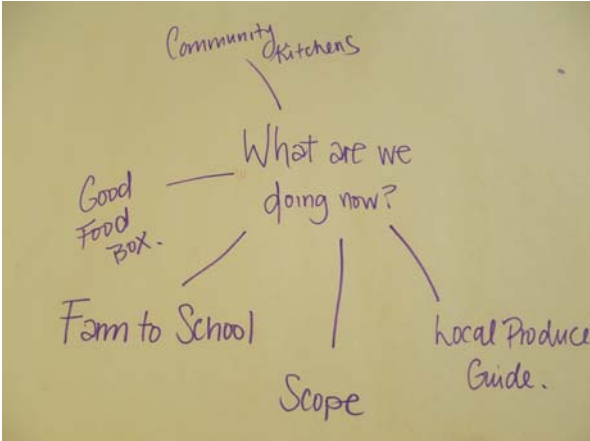 Community
Kitchens
What are we
doing now?
Good
Food
Box.
Farm to School
Scope
Local Produce
Guide.